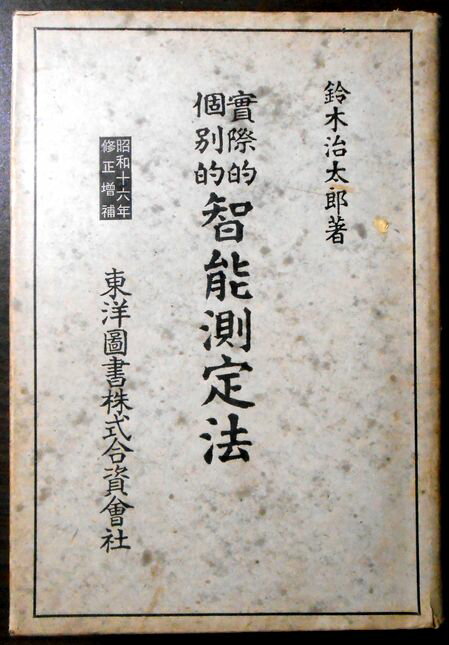 鈴木治太郎著
實際的
個別的
智能測定法
昭和十六年
修正增補
東洋圖書株式合資會社